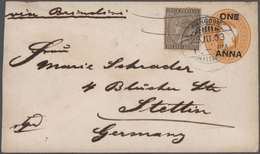 via Brindisi
ONE
ANNA
Marie Schrader
4 Blücher Str
Stettin
Germany